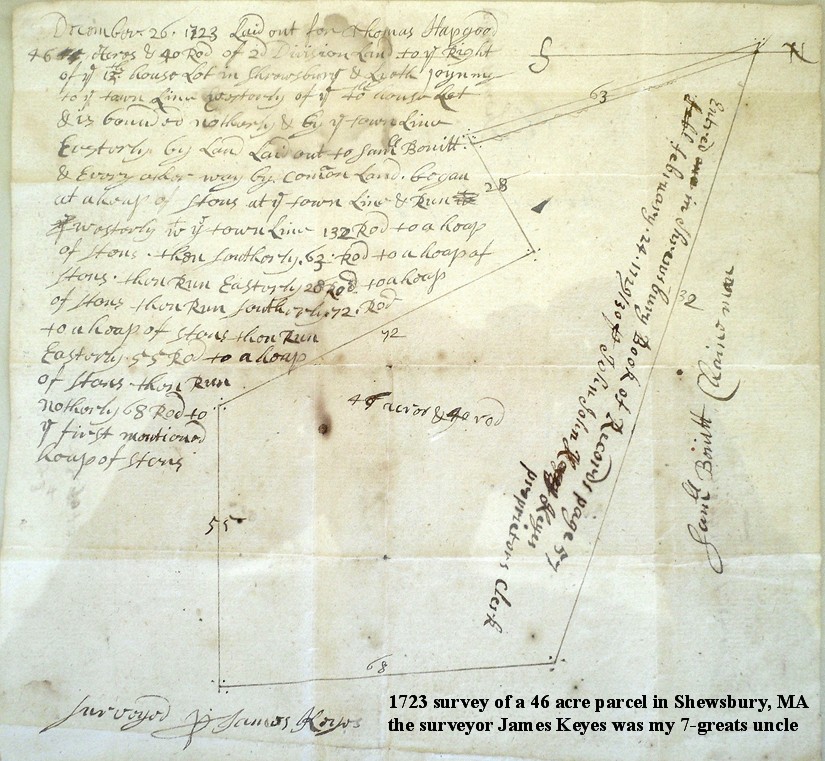 December 26. 1723 Laid out for Thomas Hapgood
46 acres & 40 Rod of 2d Division Land to ye Right
of ye house Lot in Shrowsbury & Lyeth Joyning
to ye town Line westerly of ye house Lot
& is bounded notherly & by ye town Line
Easterly by Land Laid out to Samll Bouitt
& Every other way by Comon Land. began
at a heap of Stons at ye town Line & Run
westerly ye town Line 132 Rod to a heap
of Stons. then Southerly. 63. Rod to a heap of
Stons. then Run Easterly 28 Rod to a heap
of Stons then Run Southerly. 72. Rod
to a heap of Stons then Run
Easterly. 55 Rod to a heap
of Stons. then Run
notherly 68 Rod to
ye first mentioned
heap of Stons
S N
63
28
72
32
55
68
46 acres & 40 rod
Entred in Shrewsbury Book of Records page 57
february. 24. 1729/30 John Keyes
proprietors Clerk
Samll Bouitt Chainoman
Surveyed James Keyes
1723 survey of a 46 acre parcel in Shewsbury, MA
the surveyor James Keyes was my 7-greats uncle